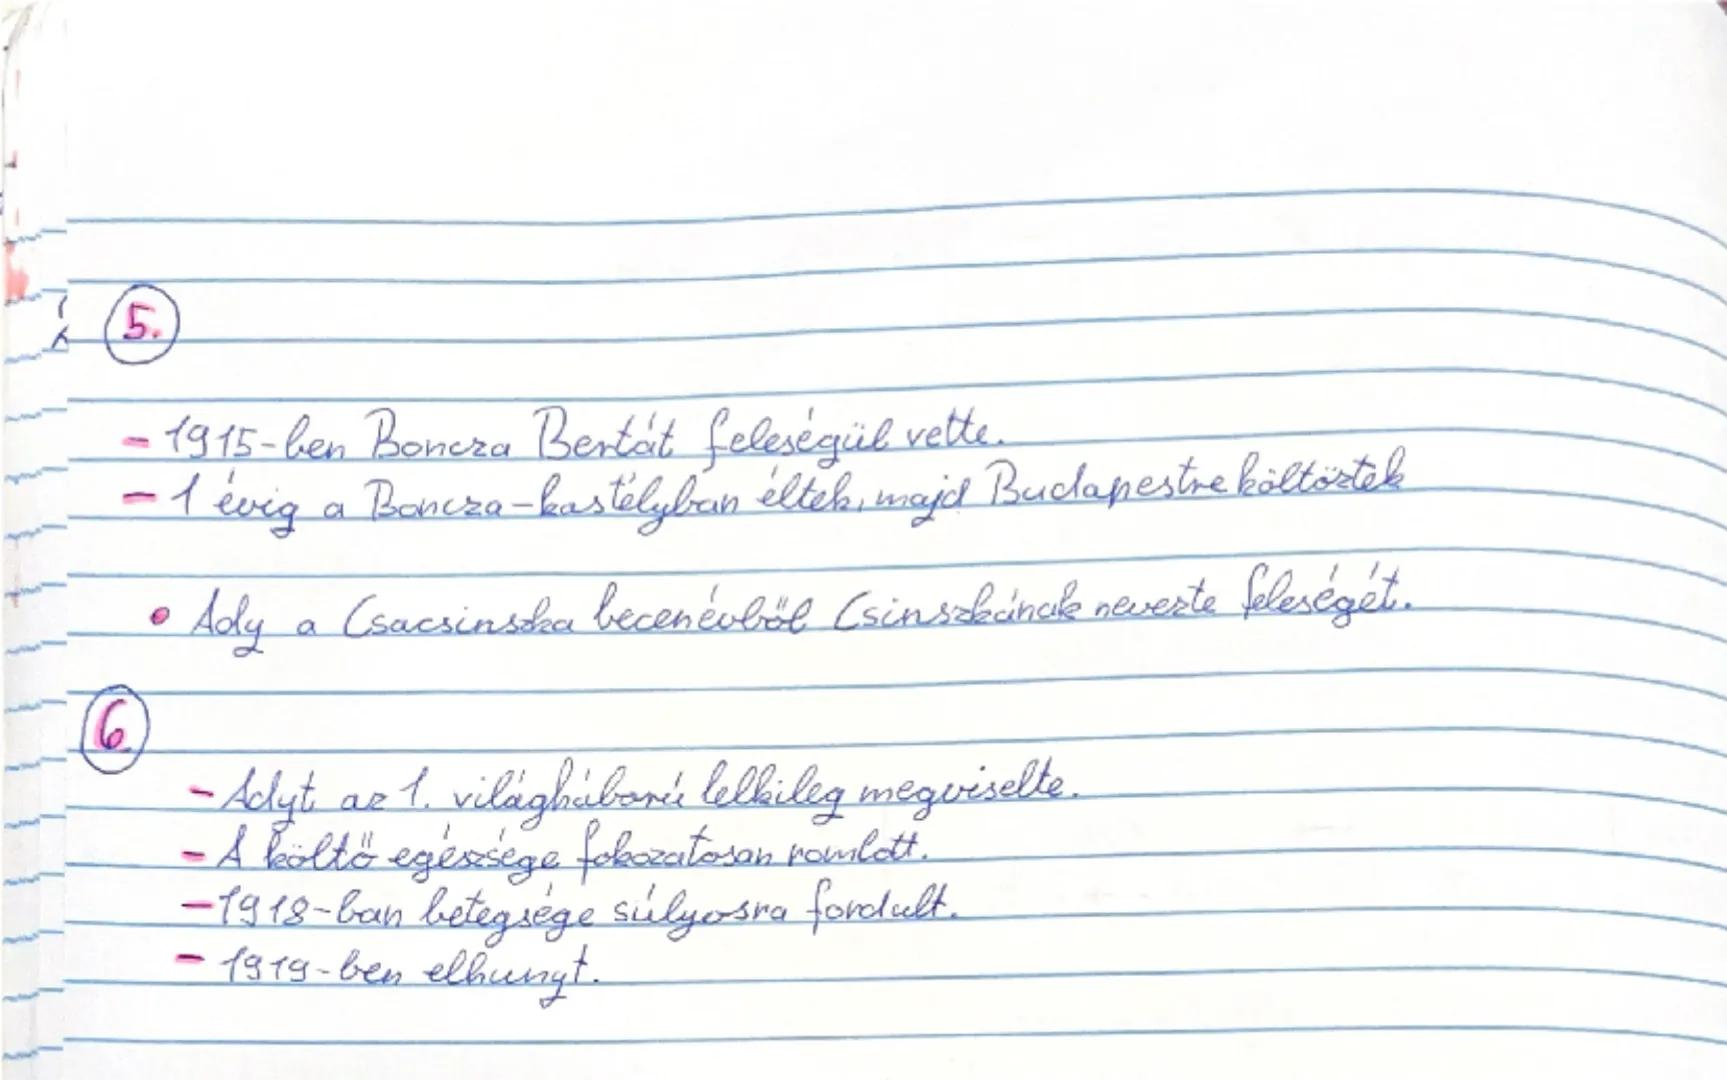 5.
- 1915-ben Boncza Bertát feleségül vette.
- 1 évig a Boncza-kastélyban éltek, majd Budapestre költöztek
• Ady a Csacsinszka becenévből Csinszkának nevezte feleségét.
6
- Adyt az 1. világháború lelkileg megviselte.
- A költő egészsége fokozatosan romlott.
- 1918-ban betegsége súlyosra fordult.
- 1919-ben elhunyt.